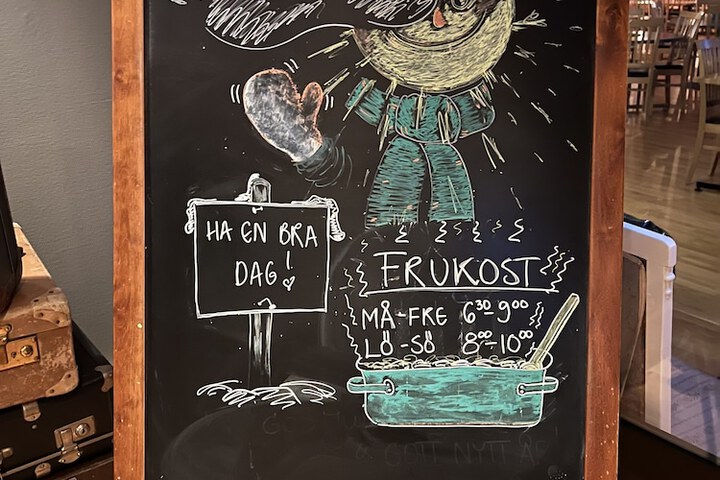 HA EN BRA
DAG!
FRUKOST
MÅ-FRE 6³⁰-9⁰⁰
LÖ-SÖ 8⁰⁰-10⁰⁰
& GOTT NYTT ÅR